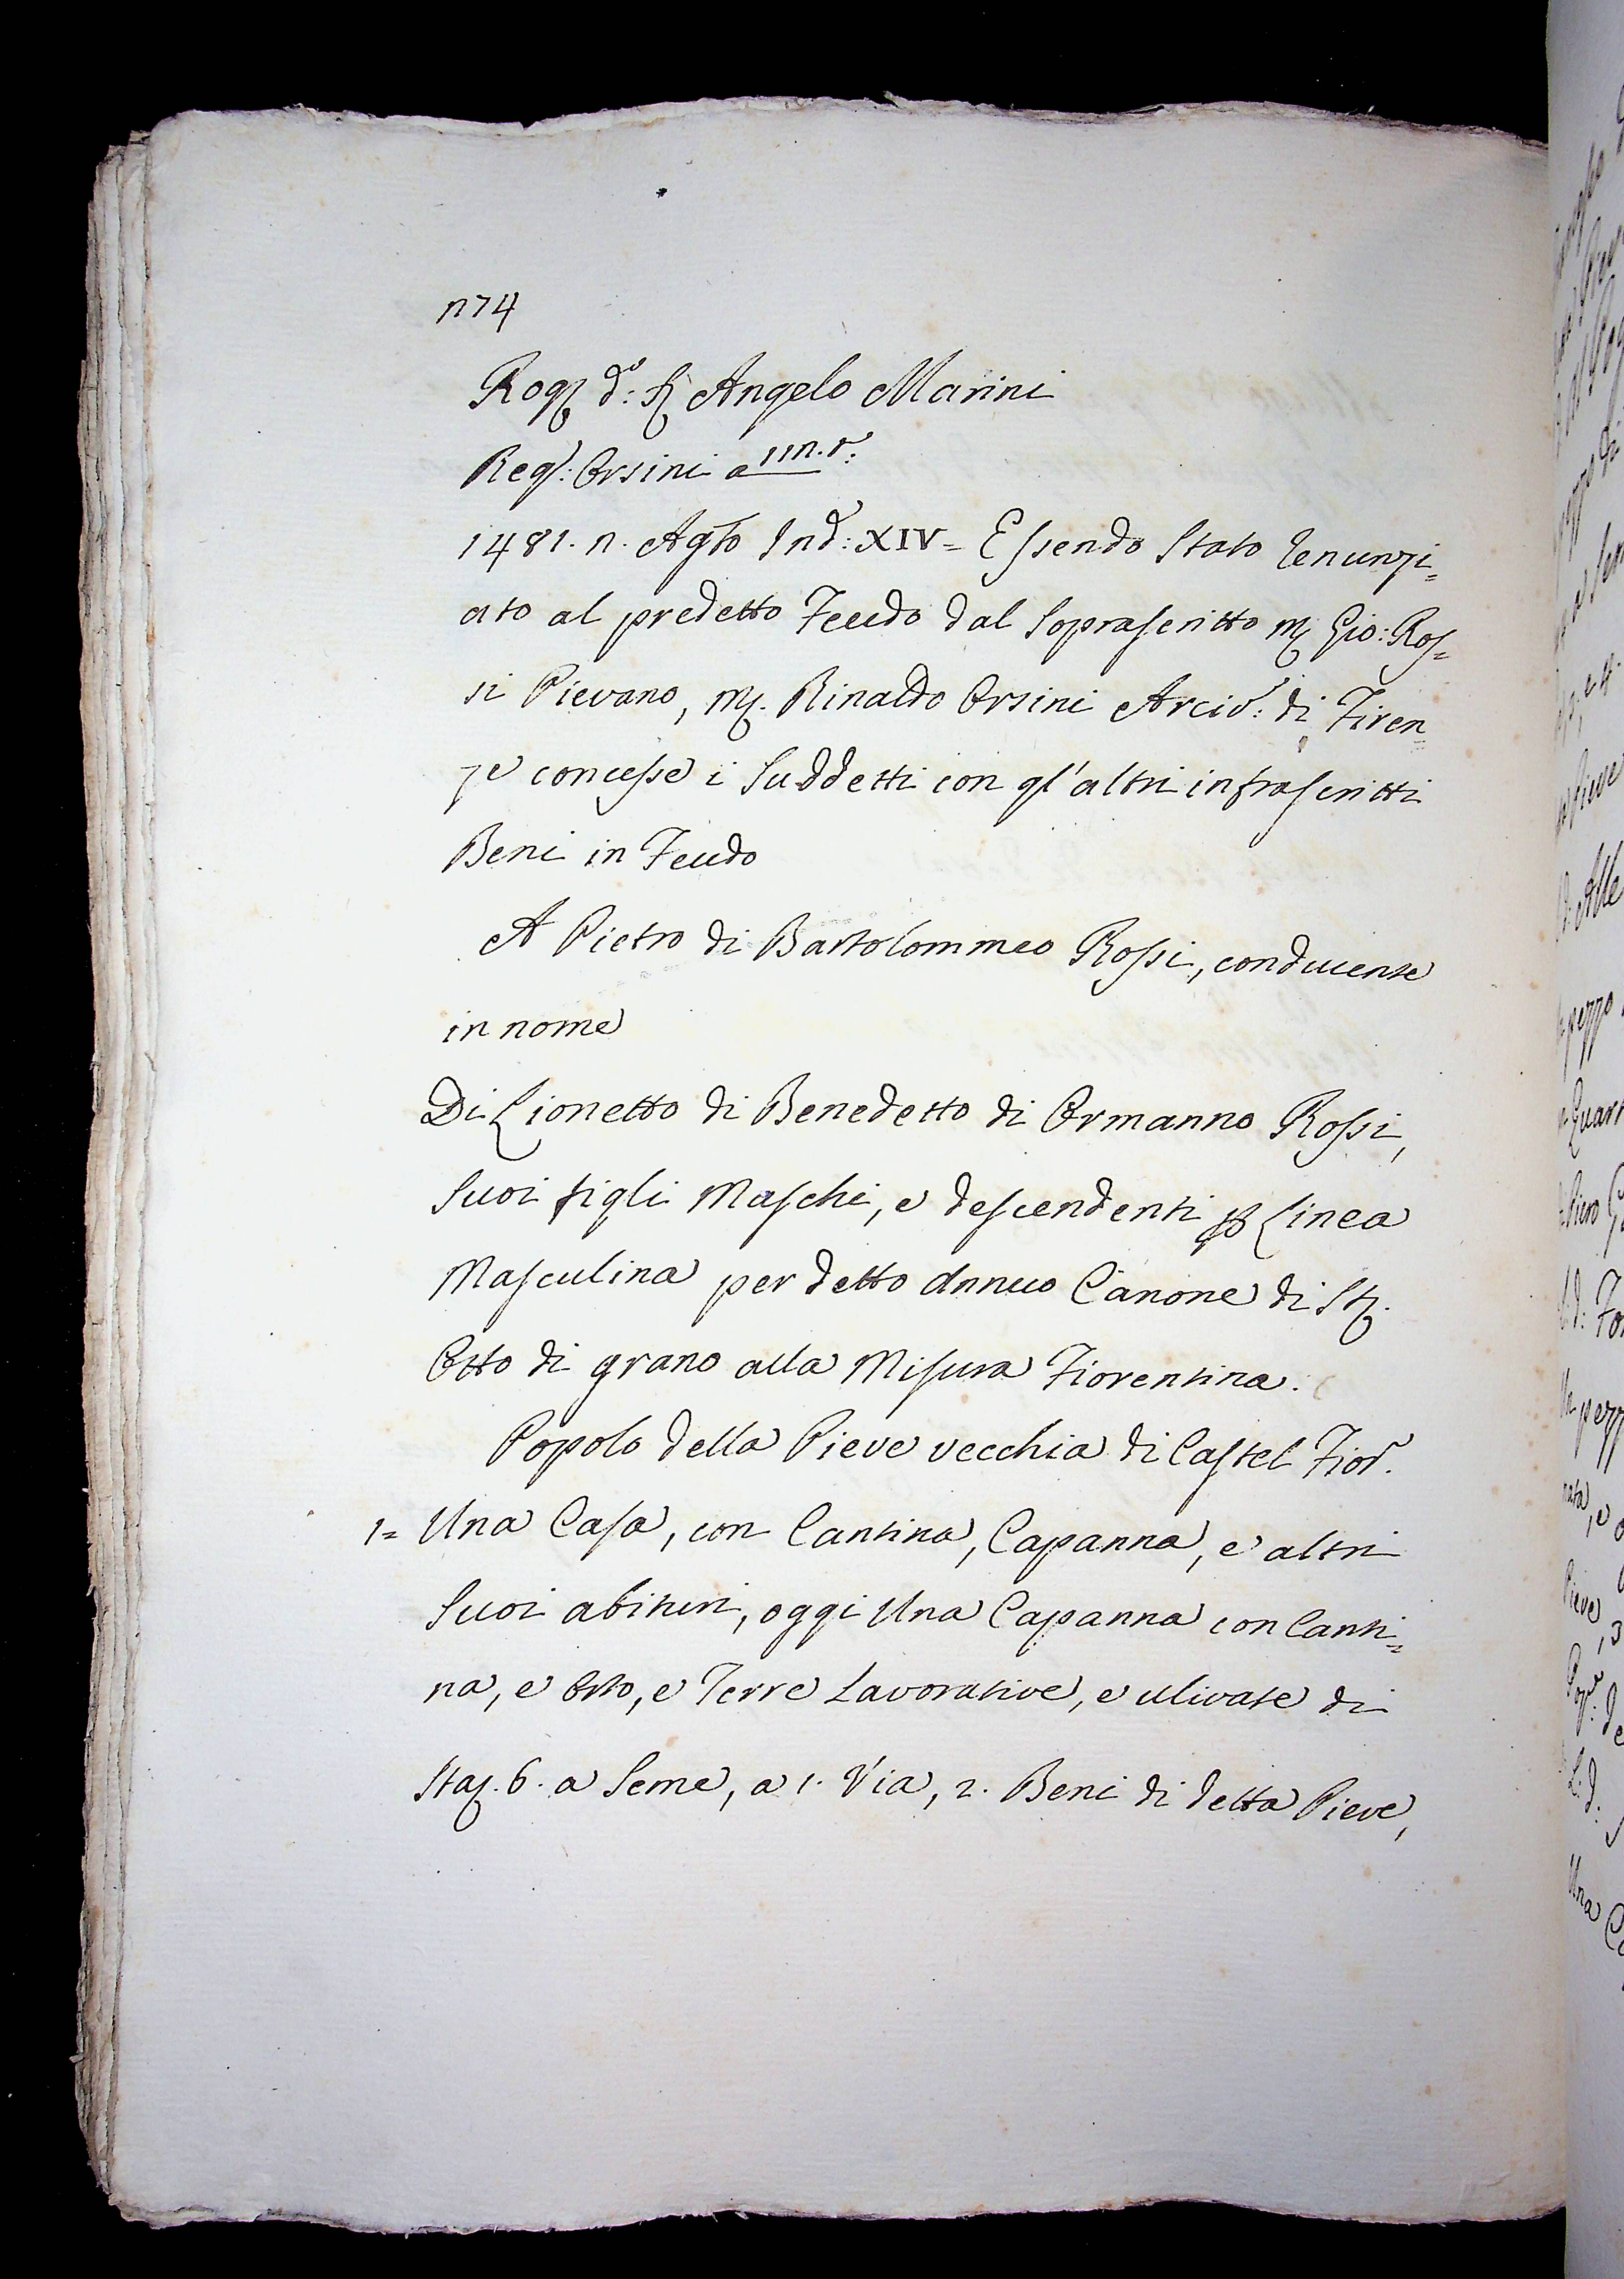 274
Rog. d: S. Angelo Marini
Reg: Orsini a 112. t:
1481. 2. Agto Ind: XIV = Essendo stato renunzi=
ato al predetto Feudo dal soprascritto M. Gio: Ros=
si Pievano, M. Rinaldo Orsini Arciv: di Firen=
ze concesse i suddetti con gl'altri infrascritti
Beni in Feudo
A Pietro di Bartolommeo Rossi, conducente
in nome
Di Lionetto di Benedetto di Ormanno Rossi,
suoi figli Maschi, e descendenti p Linea
Masculina per detto annuo Canone di St.
Otto di grano alla Misura Fiorentina.
Popolo della Pieve vecchia di Castel Fior.
1= Una Casa, con Cantina, Capanna, e altri
suoi abituri, oggi Una Capanna con Canti=
na, e Orto, e Terre Lavorative, e ulivate di
Staj. 6. a seme, a 1. Via, 2. Beni di detta Pieve,